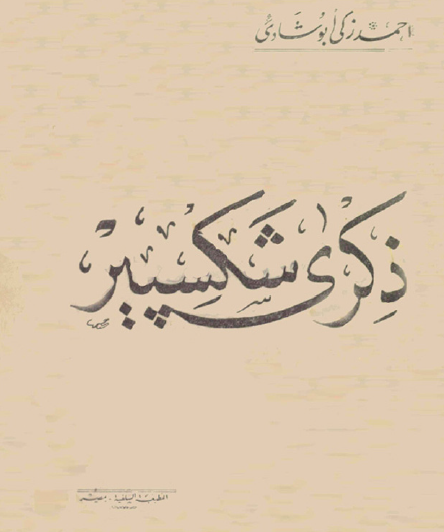 احمد زكي أبو شادي
ذكرى شكسپير
المطبعة السلفية - بمصر